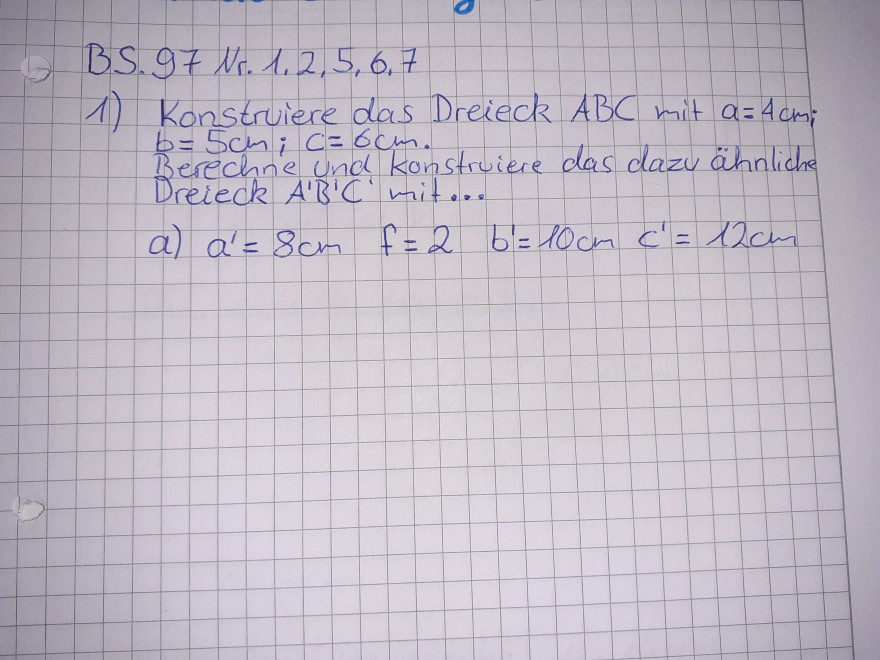 BS. 97 Nr. 1, 2, 5, 6, 7
1) Konstruiere das Dreieck ABC mit a = 4cm;
b = 5cm ; c = 6cm.
Berechne und konstruiere das dazu ähnliche
Dreieck A'B'C' mit...
a) a' = 8cm f = 2 b' = 10cm c' = 12cm